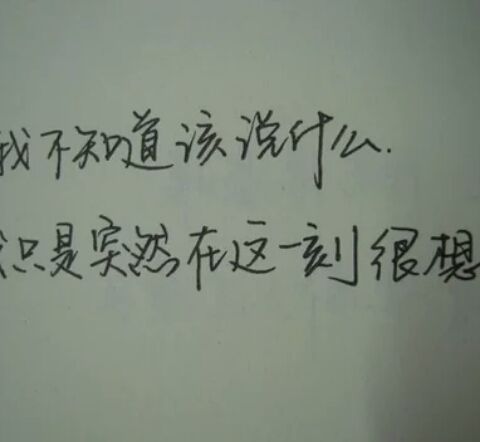 我不知道该说什么.
我只是突然在这一刻很想